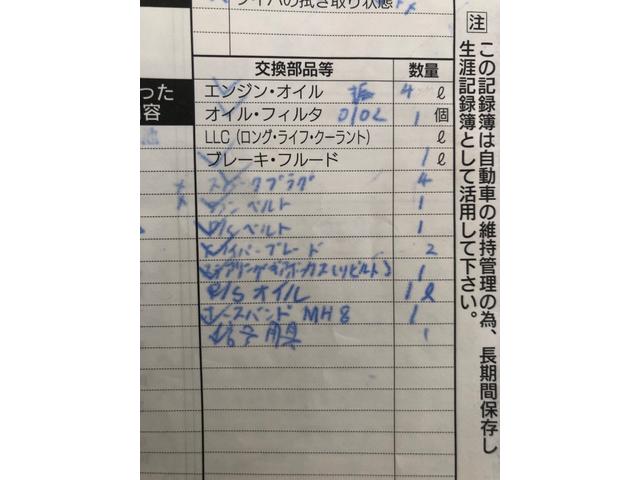 ワイパの拭き取り状態
交換部品等 数量
エンジン・オイル 4 ℓ
オイル・フィルタ 0102 1 個
LLC (ロング・ライフ・クーラント) ℓ
ブレーキ・フルード 1 ℓ
スパークプラグ 4
ファンベルト 1
P/Sベルト 1
ワイパーブレード 2
ステアリングギヤボックス(リビルト) 1
P/S オイル 1 ℓ
ホースバンド MH8 1
信号用具 1
った
容
注
この記録簿は自動車の維持管理の為、長期間保存し
生涯記録簿として活用して下さい。